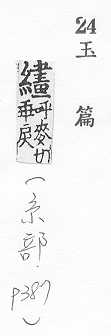 24
玉篇
繣呼麥切
乖戾
(糸部. p387)